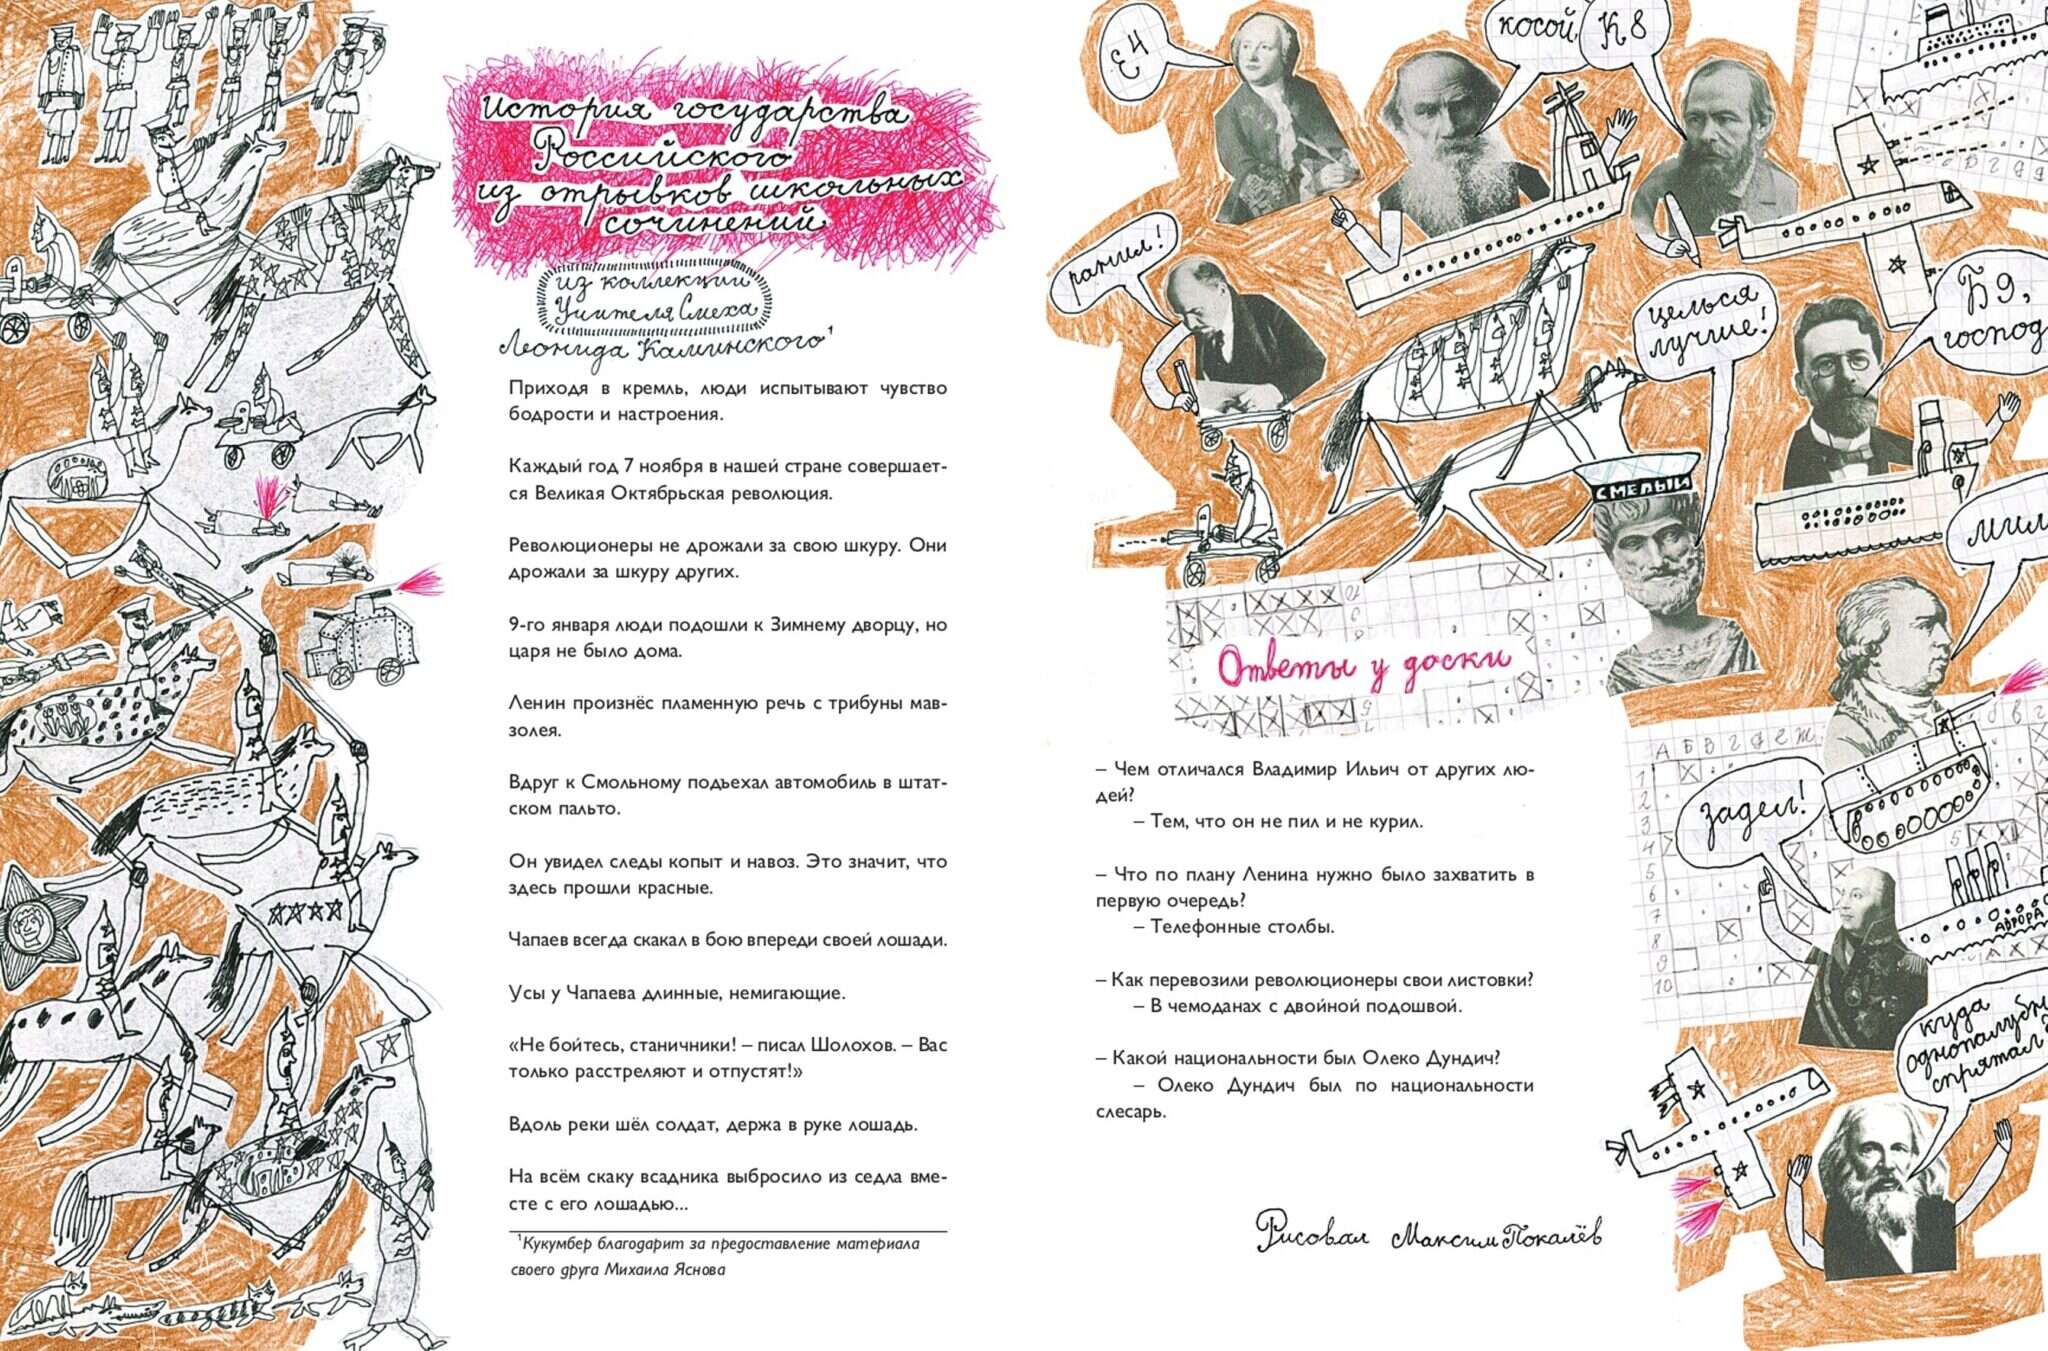 История государства
Российского
из отрывков школьных
сочинений
из коллекции
Учителя Смеха
Леонида Каминского¹
Приходя в кремль, люди испытывают чувство
бодрости и настроения.
Каждый год 7 ноября в нашей стране совершает-
ся Великая Октябрьская революция.
Революционеры не дрожали за свою шкуру. Они
дрожали за шкуру других.
9-го января люди подошли к Зимнему дворцу, но
царя не было дома.
Ленин произнёс пламенную речь с трибуны мав-
золея.
Вдруг к Смольному подъехал автомобиль в штат-
ском пальто.
Он увидел следы копыт и навоз. Это значит, что
здесь прошли красные.
Чапаев всегда скакал в бою впереди своей лошади.
Усы у Чапаева длинные, немигающие.
«Не бойтесь, станичники! – писал Шолохов. – Вас
только расстреляют и отпустят!»
Вдоль реки шёл солдат, держа в руке лошадь.
На всём скаку всадника выбросило из седла вме-
сте с его лошадью...
¹Кукумбер благодарит за предоставление материала
своего друга Михаила Яснова
Е4
косой,
К8
ранил!
целься
лучше!
Б9,
господ
СМЕЛЫЙ
мил
Ответы у доски
– Чем отличался Владимир Ильич от других лю-
дей?
– Тем, что он не пил и не курил.
– Что по плану Ленина нужно было захватить в
первую очередь?
– Телефонные столбы.
– Как перевозили революционеры свои листовки?
– В чемоданах с двойной подошвой.
– Какой национальности был Олеко Дундич?
– Олеко Дундич был по национальности
слесарь.
А Б В Г Д Е Ж
1
2
3
4
5
6
7
8
9
10
задел!
АВРОРА
куда
однопалубн
спрятал
Рисовал Максим Покалёв